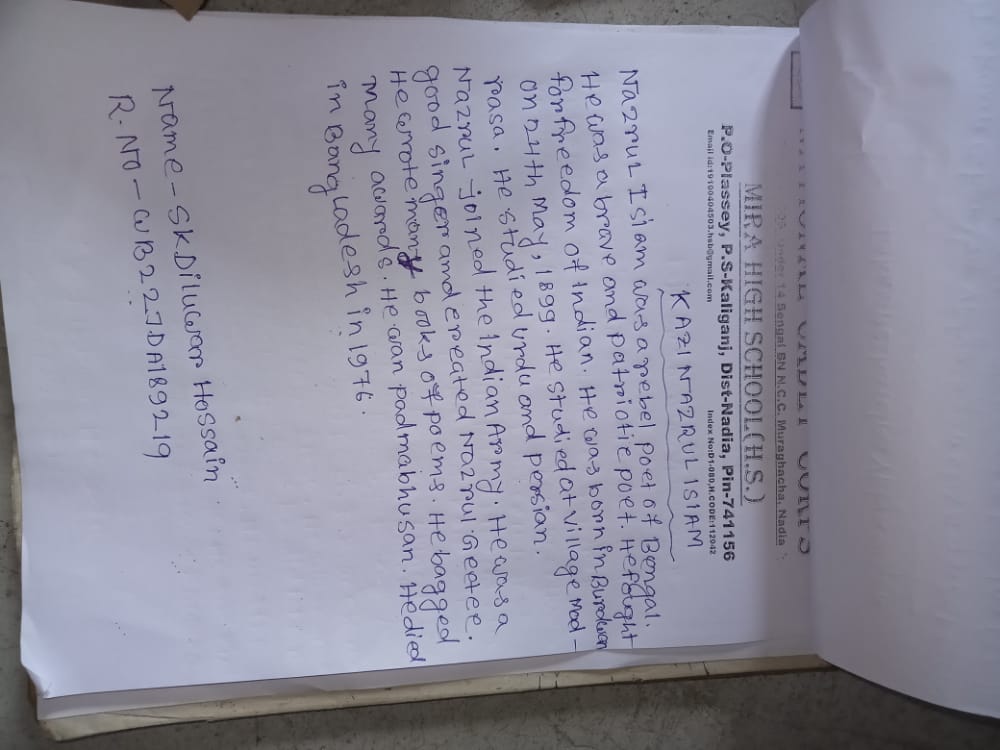 NATIONAL CADET CORPS
Under 14 Bengal BN N.C.C. Muraghacha, Nadia
MIRA HIGH SCHOOL(H.S.)
P.O-Plassey, P.S-Kaliganj, Dist-Nadia, Pin-741156
Email id:19100404503.hsb@gmail.com Index No:D1-080,H.CODE:112042
KAZI NAZRUL ISIAM
Nazrul Isiam was a rebel poet of Bengal.
He was a brave and patriotic poet. He fought
for freedom of Indian. He was born in Burdwan
on 24th May, 1899. He studied at village mad-
rasa. He studied urdu and persian.
Nazrul joined the Indian Army. He was a
good singer and created Nazrul Geetee.
He wrote many books of poems. He bagged
many awards. He wan padmabhusan. He died
in Bangladesh in 1976.
Name - SK Diluwar Hossain
R. NO - WB22JDA189219